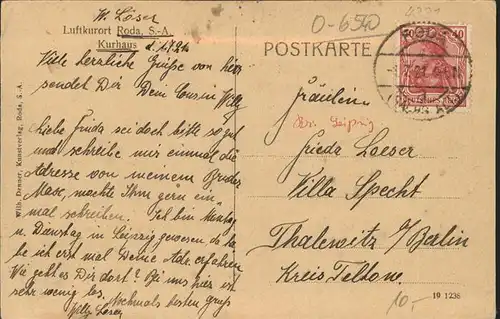 W. Löser
Luftkurort Roda, S.-A.
Kurhaus d. 1.7.21.
Viele herrliche Grüße von hier
sendet Dir Dein Cousin Willy
Liebe Frieda sei doch bitte so gut
und schreibe mir einmal die
Adresse von meinem Bruder
Max, möchte Ihm gern ein-
mal schreiben. Ich bin Montag
u. Dienstag in Leipzig gewesen, da ha-
be ich erst mal Deine Adr. erfahren
Wie geht es Dir dort? Bei uns hier ist
sehr wenig los. Nochmals besten Gruß
Willy Löser
Wilh. Denner, Kunstverlag, Roda, S.-A.
0-6540
POSTKARTE
RODA
40
Fräulein
Leipzig
Frieda Loeser
Villa Specht
Thalewitz b/Berlin
Kreis Teltow.
10,-
19 1236